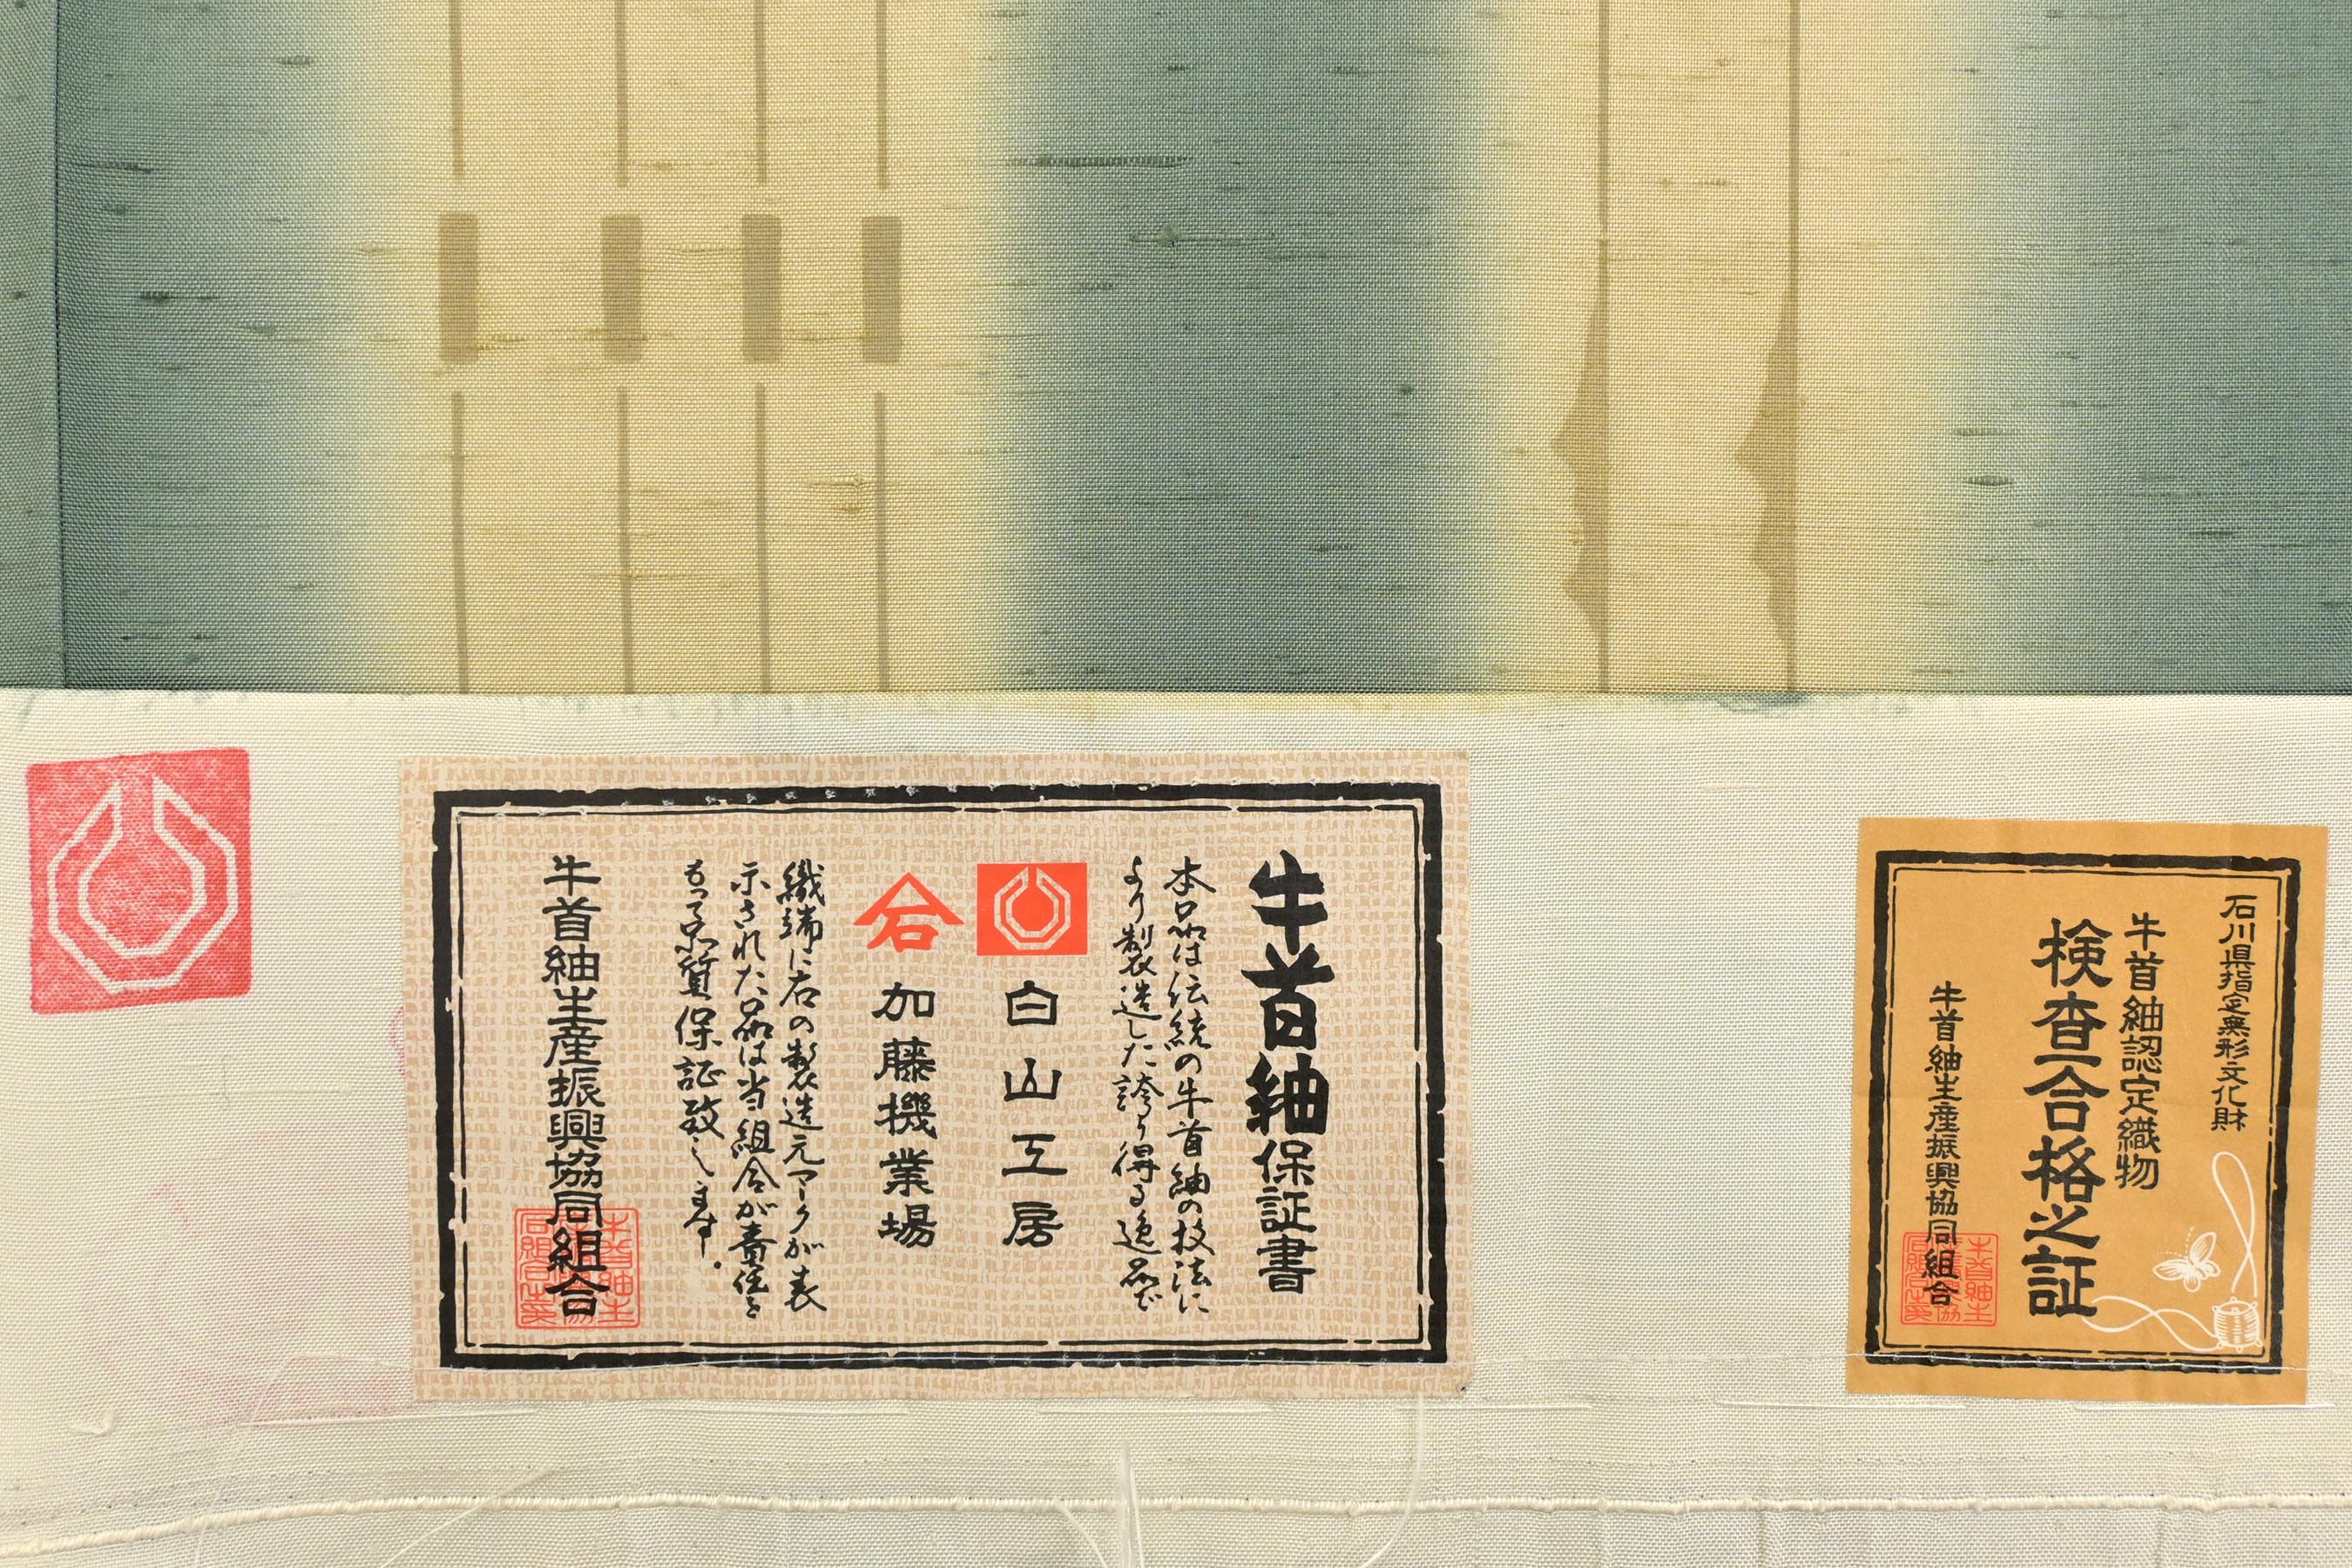 石川県指定無形文化財
牛首紬認定織物
検査合格之証
牛首紬生産振興協同組合
牛首紬保証書
本品は伝統の牛首紬の技法に
より製造した誇り得る逸品で
白山工房
石 加藤機業場
織端に右の製造元マークが表
示された品は当組合が責任を
もって品質保証致します。
牛首紬生産振興協同組合